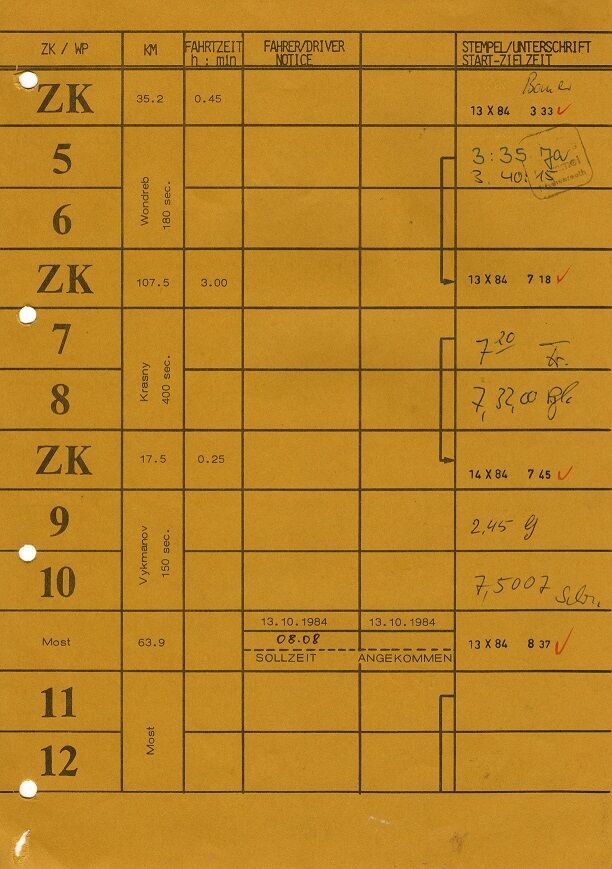 ZK / WP KM FAHRTZEIT FAHRER/DRIVER STEMPEL/UNTERSCHRIFT
h : min NOTICE START-ZIELZEIT
ZK 35.2 0.45 13 X 84 3 33 ✓
5 3:35
3. 40:15
6
Wondreb
180 sec.
ZK 107.5 3.00 13 X 84 7 18 ✓
7 7 20
8 7,32,00
Krasny
400 sec.
ZK 17.5 0.25 14 X 84 7 45 ✓
9 2,45
10 7,5007
Vykmanov
150 sec.
13.10.1984 13.10.1984
Most 63.9 08.08 13 X 84 8 37 ✓
SOLLZEIT ANGEKOMMEN
11
12
Most